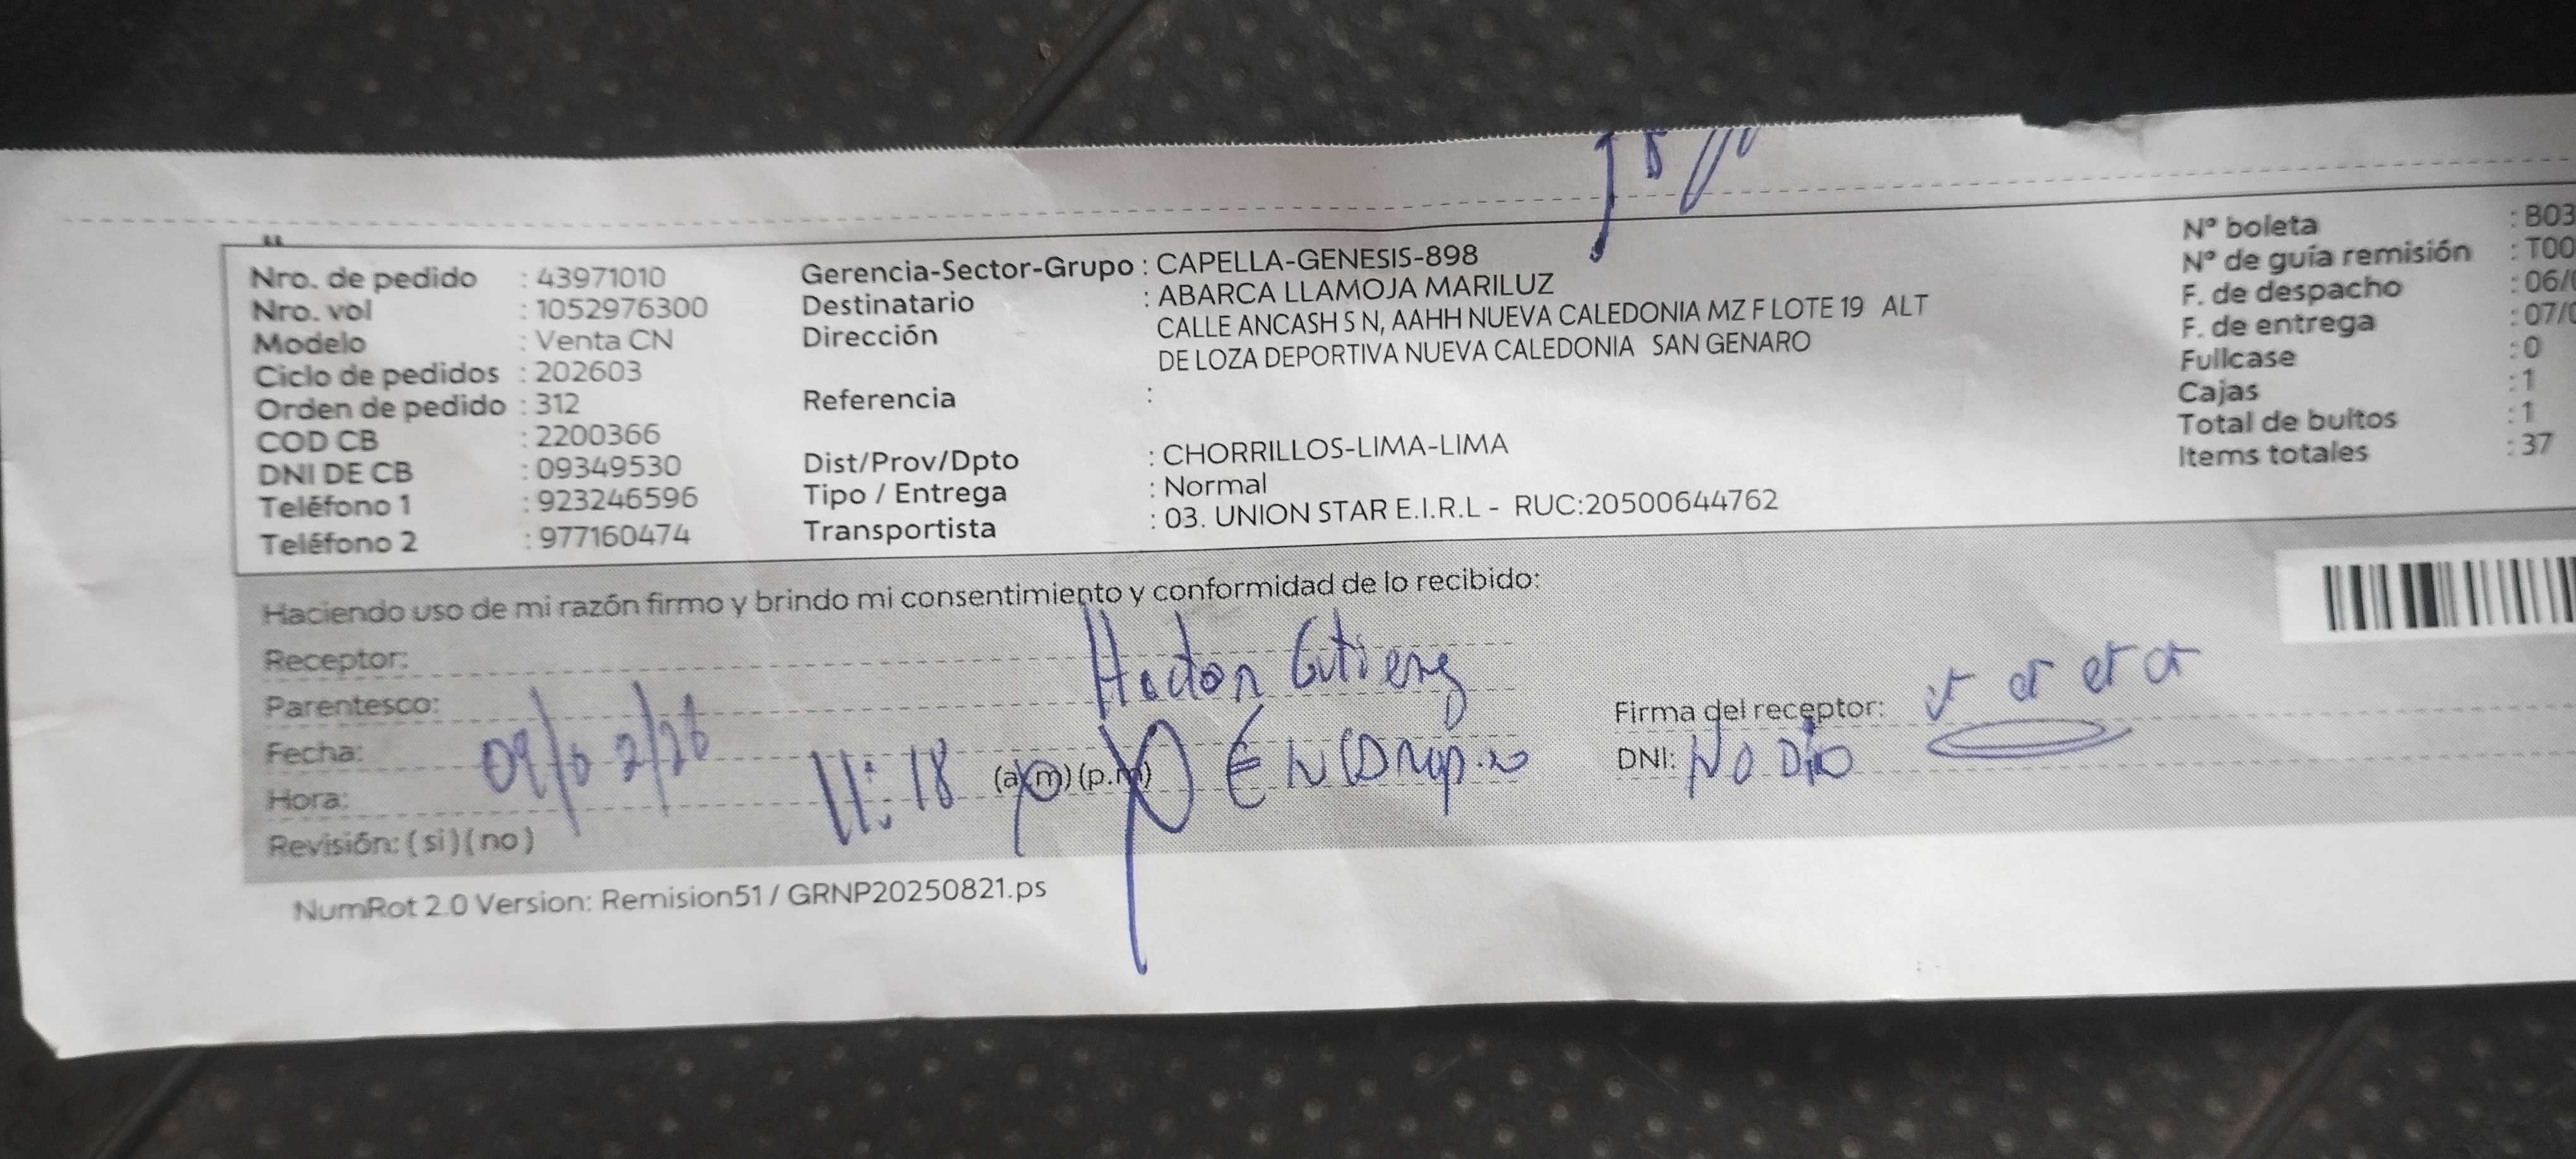 Nro. de pedido : 43971010
Nro. vol : 1052976300
Modelo : Venta CN
Ciclo de pedidos : 202603
Orden de pedido : 312
COD CB : 2200366
DNI DE CB : 09349530
Teléfono 1 : 923246596
Teléfono 2 : 977160474
Gerencia-Sector-Grupo : CAPELLA-GENESIS-898
Destinatario : ABARCA LLAMOJA MARILUZ
Dirección CALLE ANCASH S N, AAHH NUEVA CALEDONIA MZ F LOTE 19 ALT
DE LOZA DEPORTIVA NUEVA CALEDONIA SAN GENARO
Referencia :
Dist/Prov/Dpto : CHORRILLOS-LIMA-LIMA
Tipo / Entrega : Normal
Transportista : 03. UNION STAR E.I.R.L - RUC:20500644762
Nº boleta : B03
Nº de guía remisión : T00
F. de despacho : 06/
F. de entrega : 07/
Fullcase : 0
Cajas : 1
Total de bultos : 1
Items totales : 37
Haciendo uso de mi razón firmo y brindo mi consentimiento y conformidad de lo recibido:
Receptor: Hector Gutierrez
Parentesco:
Fecha: 09/02/26
Hora: 11:18 (a.m) (p.m)
Revisión: (si) (no)
Firma del receptor:
DNI: NO Dio
NumRot 2.0 Version: Remision51 / GRNP20250821.ps